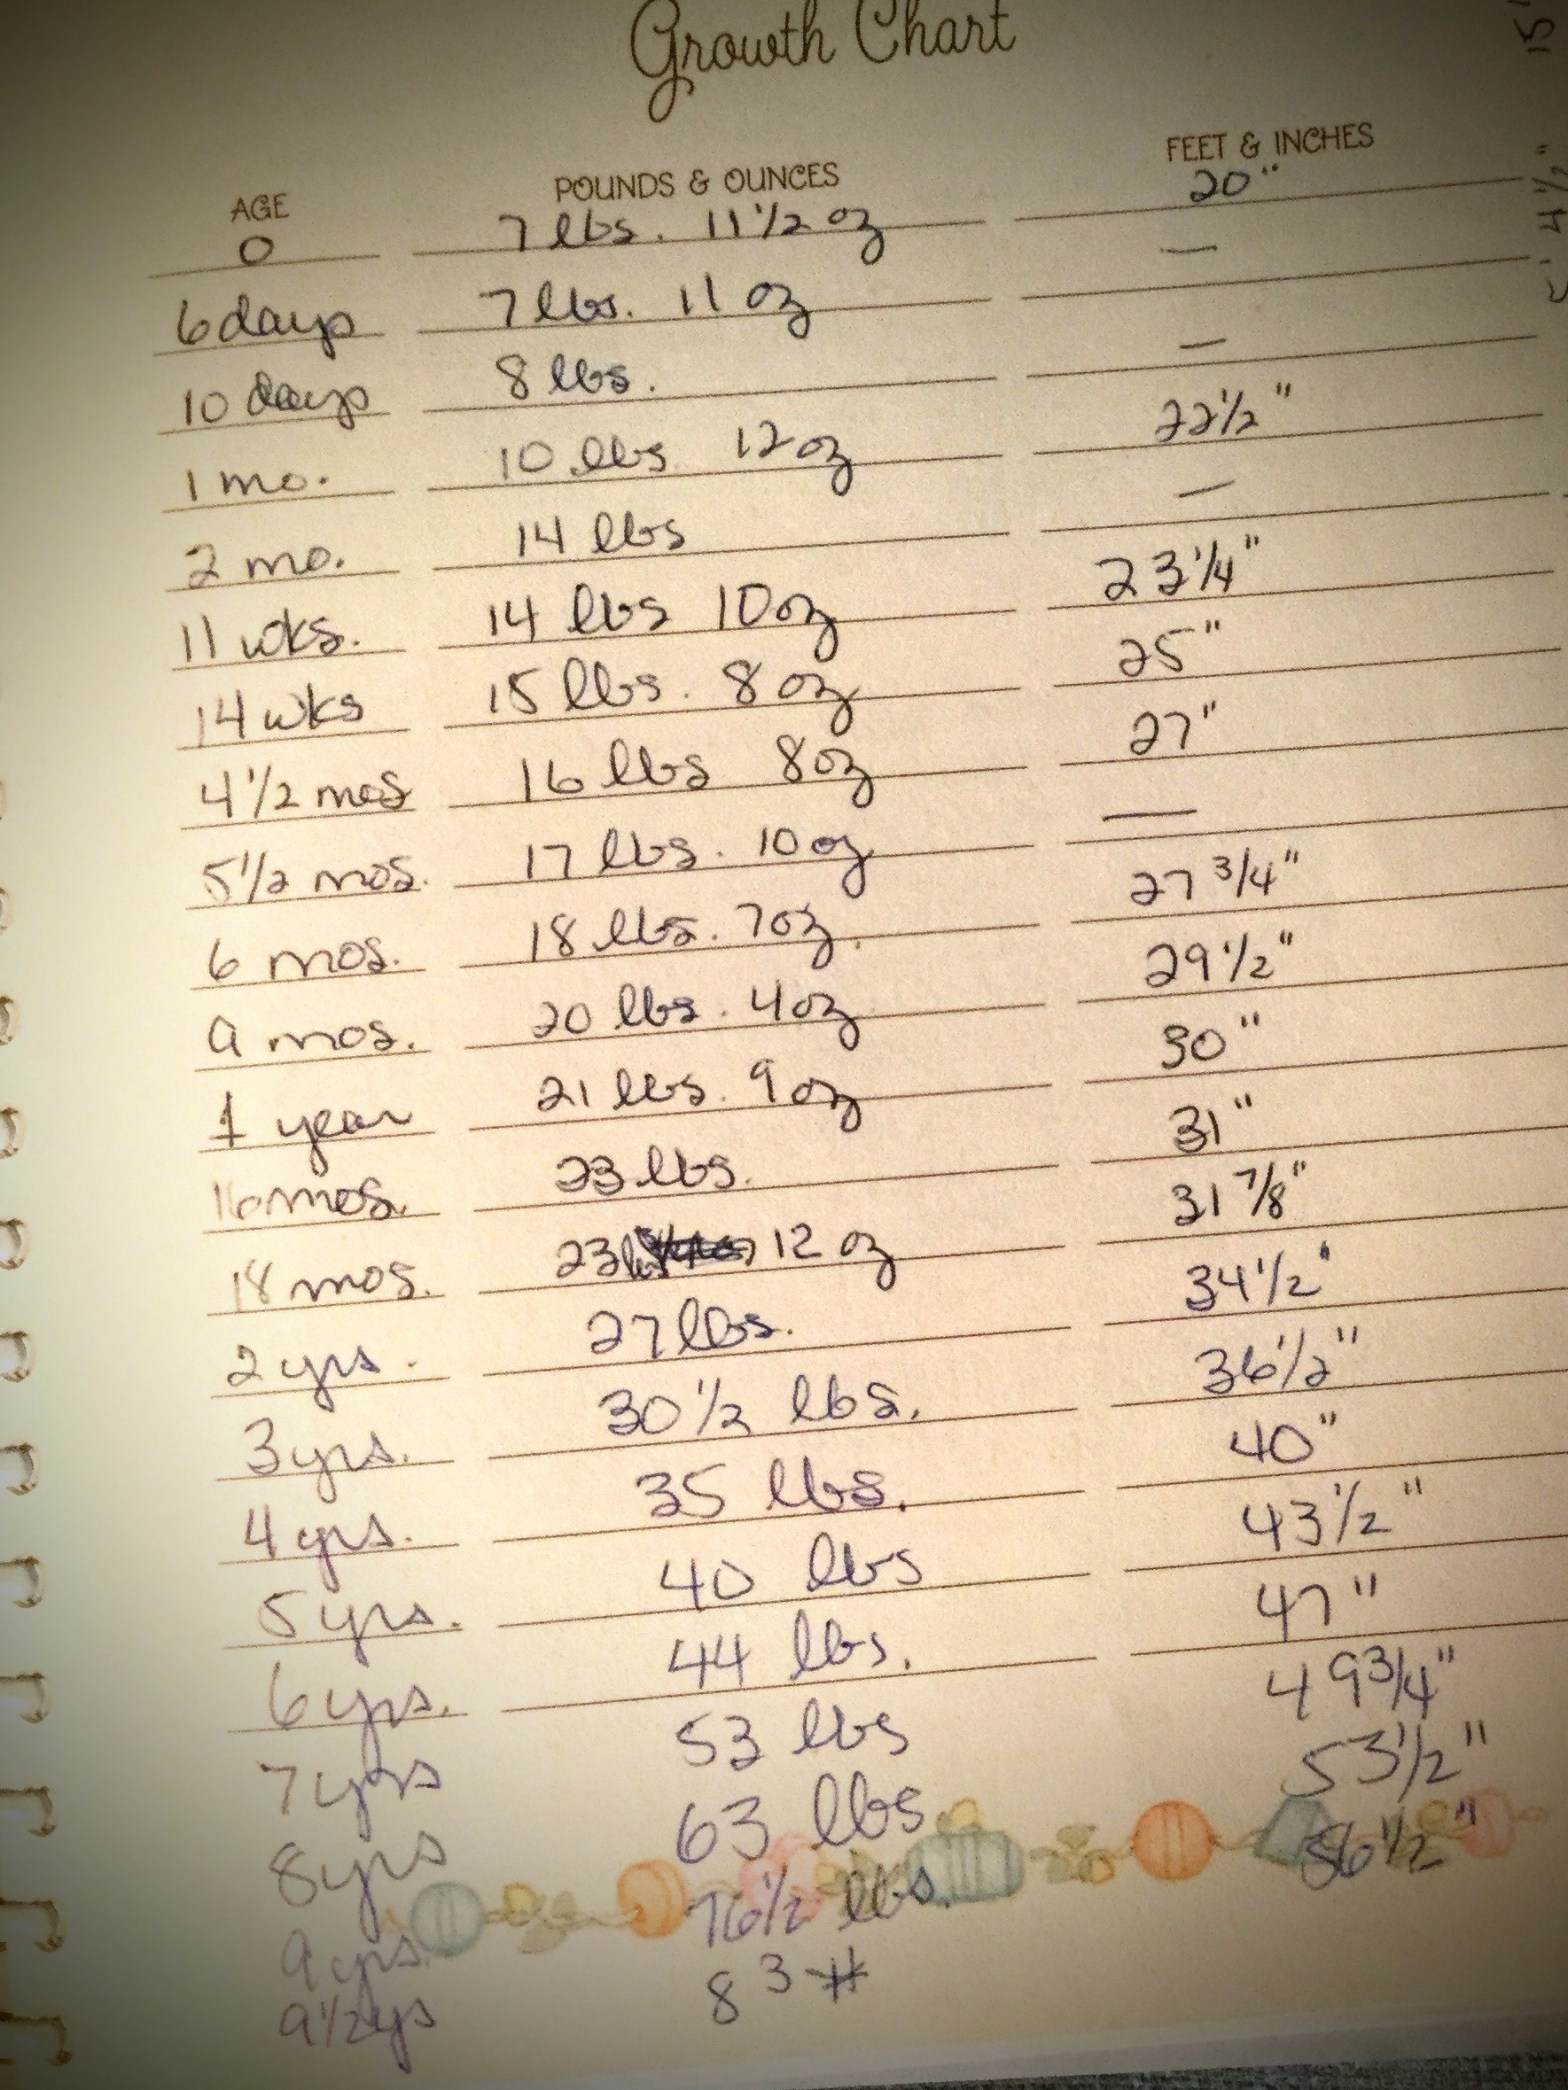 Growth Chart
AGE POUNDS & OUNCES FEET & INCHES
0 7 lbs. 11 1/2 oz 20"
6 days 7 lbs. 11 oz —
10 days 8 lbs. —
1 mo. 10 lbs 12 oz 22 1/2"
2 mo. 14 lbs —
11 wks. 14 lbs 10 oz 23 1/4"
14 wks 15 lbs. 8 oz 25"
4 1/2 mos 16 lbs 8 oz 27"
5 1/2 mos. 17 lbs. 10 oz —
6 mos. 18 lbs. 7 oz. 27 3/4"
9 mos. 20 lbs. 4 oz 29 1/2"
1 year 21 lbs. 9 oz 30"
16 mos. 23 lbs. 31"
18 mos. 23 lbs 12 oz 31 7/8"
2 yrs. 27 lbs. 34 1/2"
3 yrs. 30 1/2 lbs. 36 1/2"
4 yrs. 35 lbs. 40"
5 yrs. 40 lbs 43 1/2"
6 yrs. 44 lbs. 47"
7 yrs 53 lbs 49 3/4"
8 yrs 63 lbs 53 1/2"
9 yrs 76 1/2 lbs. 56 1/2"
9 1/2 ys 83 #